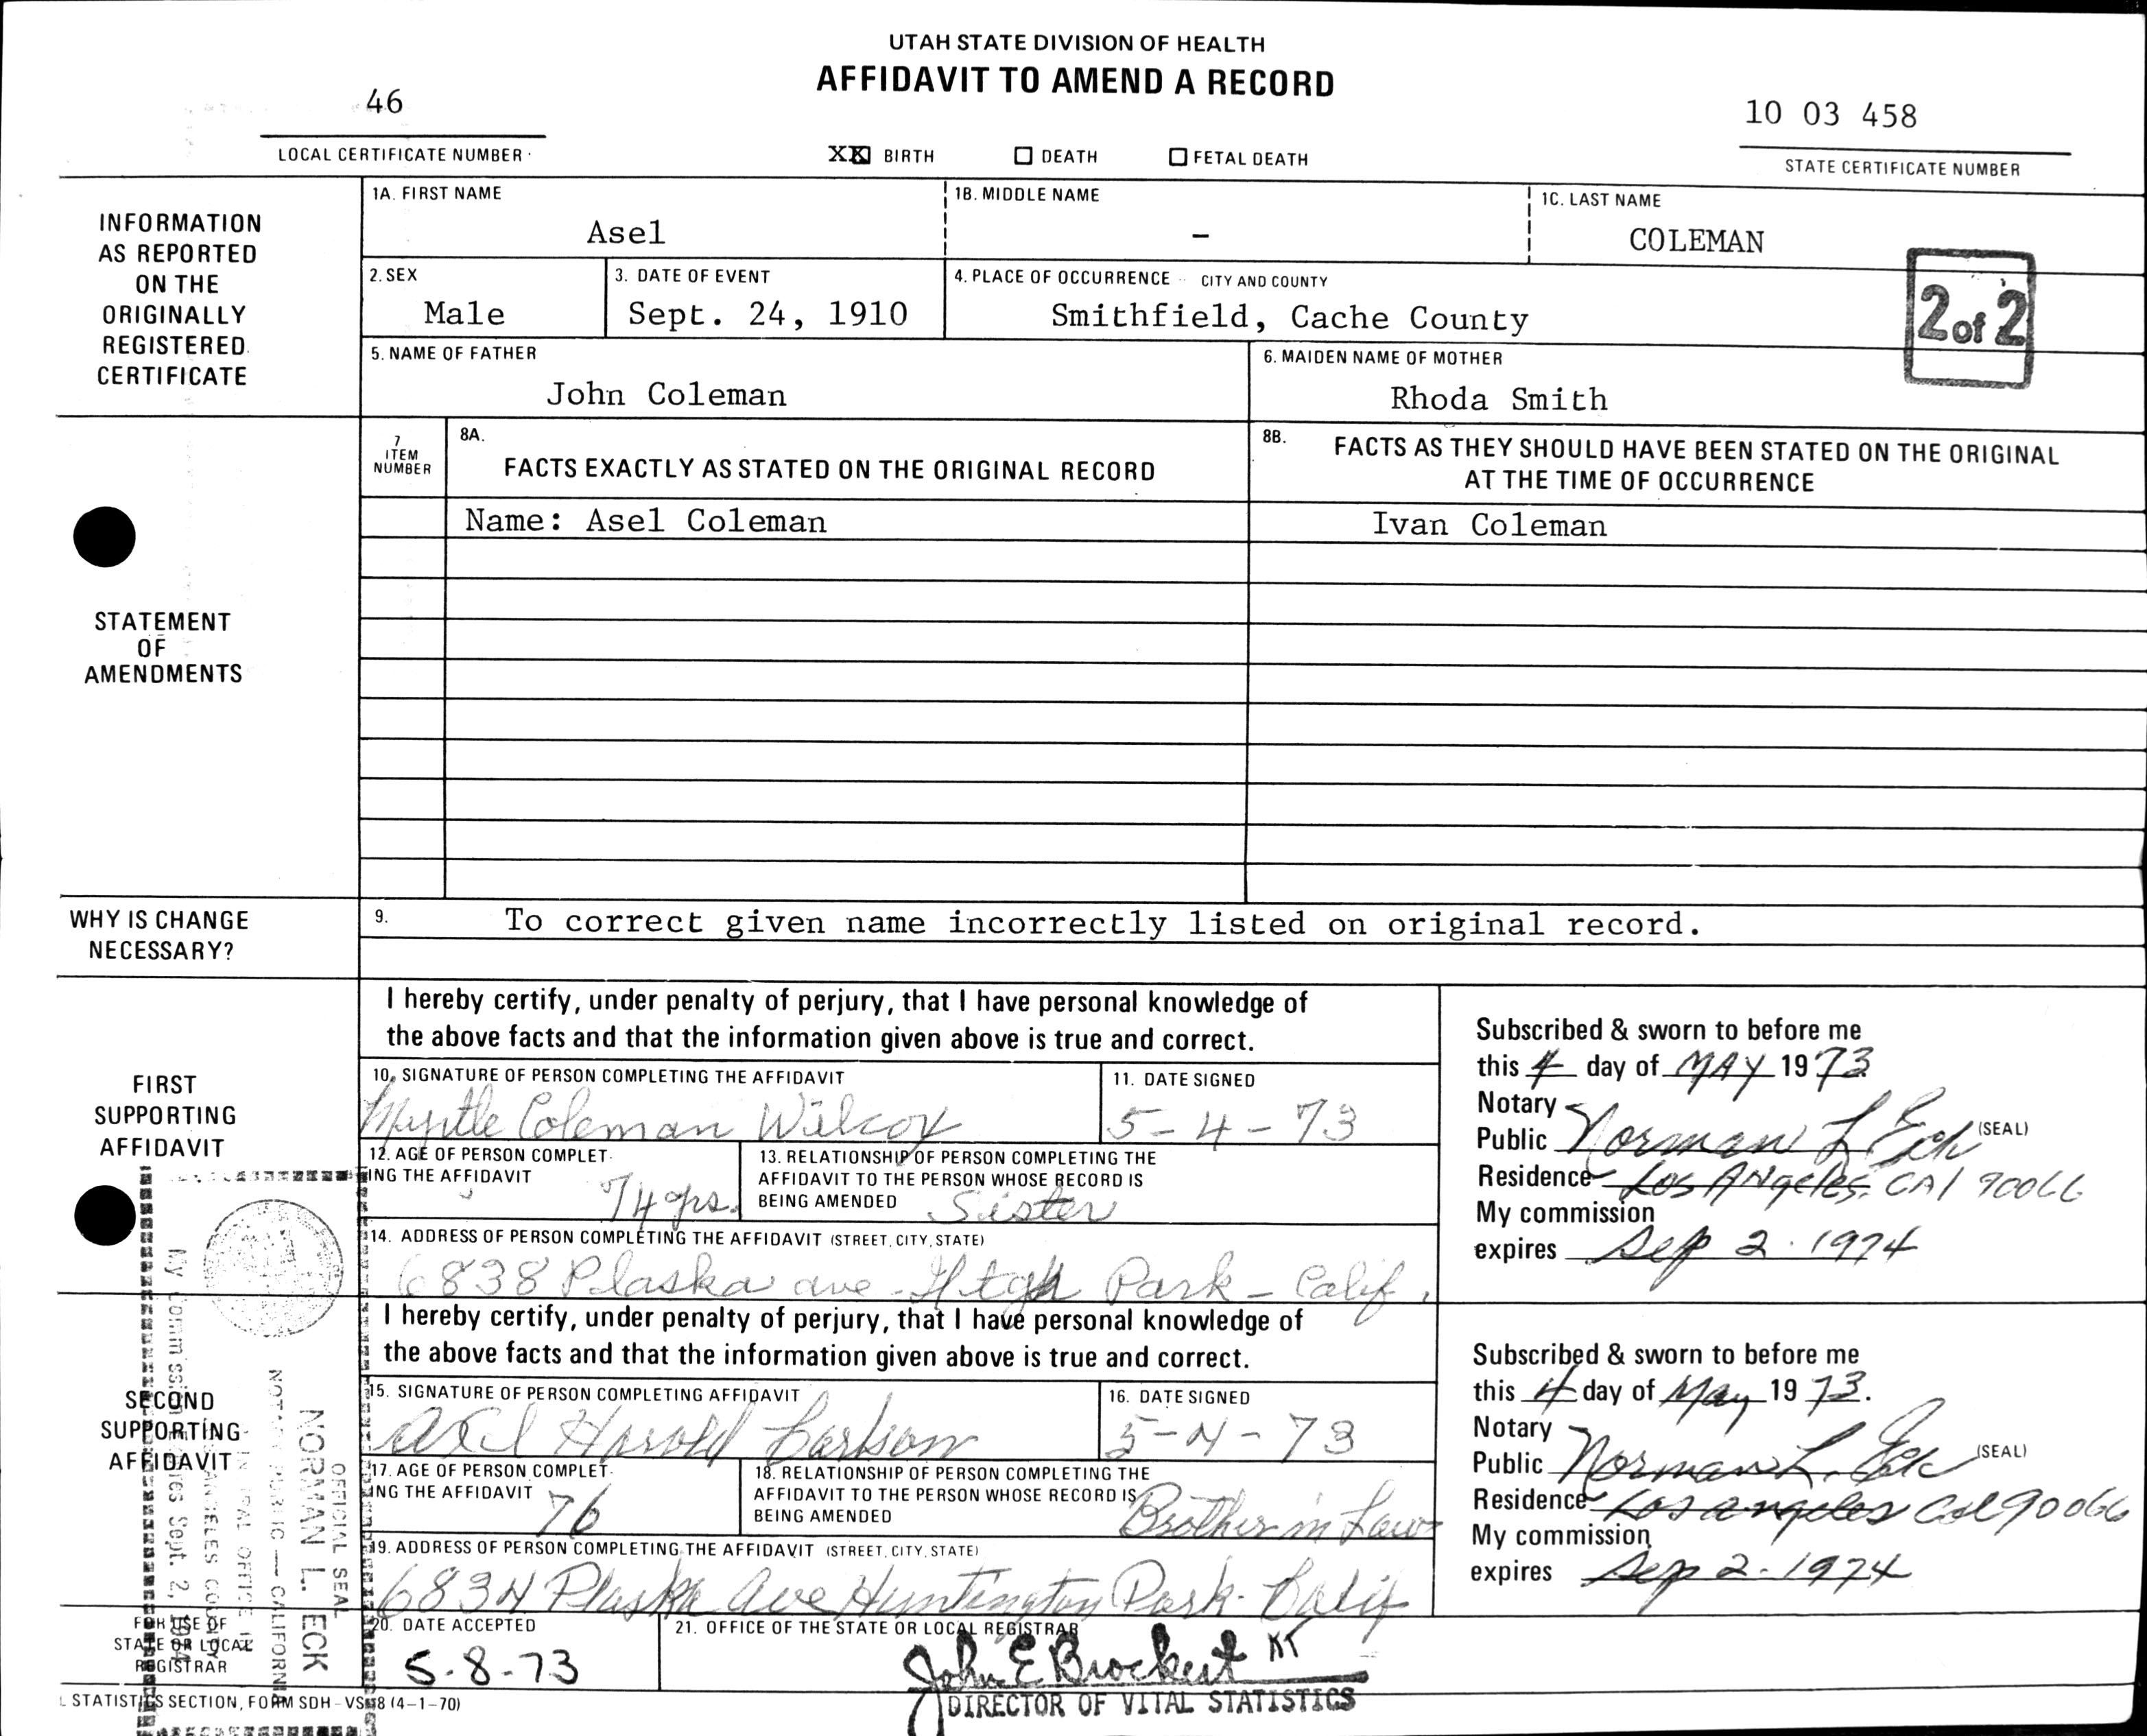 UTAH STATE DIVISION OF HEALTH
AFFIDAVIT TO AMEND A RECORD
46
LOCAL CERTIFICATE NUMBER
XX BIRTH DEATH FETAL DEATH
10 03 458
STATE CERTIFICATE NUMBER
INFORMATION
AS REPORTED
ON THE
ORIGINALLY
REGISTERED
CERTIFICATE
1A. FIRST NAME
Asel
1B. MIDDLE NAME
-
1C. LAST NAME
COLEMAN
2. SEX
Male
3. DATE OF EVENT
Sept. 24, 1910
4. PLACE OF OCCURRENCE -- CITY AND COUNTY
Smithfield, Cache County
2 of 2
5. NAME OF FATHER
John Coleman
6. MAIDEN NAME OF MOTHER
Rhoda Smith
STATEMENT
OF
AMENDMENTS
7
ITEM
NUMBER
8A.
FACTS EXACTLY AS STATED ON THE ORIGINAL RECORD
8B.
FACTS AS THEY SHOULD HAVE BEEN STATED ON THE ORIGINAL
AT THE TIME OF OCCURRENCE
Name: Asel Coleman
Ivan Coleman
WHY IS CHANGE
NECESSARY?
9.
To correct given name incorrectly listed on original record.
FIRST
SUPPORTING
AFFIDAVIT
I hereby certify, under penalty of perjury, that I have personal knowledge of
the above facts and that the information given above is true and correct.
10. SIGNATURE OF PERSON COMPLETING THE AFFIDAVIT
Myrtle Coleman Wilcox
11. DATE SIGNED
5-4-73
12. AGE OF PERSON COMPLET-
ING THE AFFIDAVIT
74 yrs.
13. RELATIONSHIP OF PERSON COMPLETING THE
AFFIDAVIT TO THE PERSON WHOSE RECORD IS
BEING AMENDED
Sister
14. ADDRESS OF PERSON COMPLETING THE AFFIDAVIT (STREET, CITY, STATE)
6838 Plaska ave Park - Calif.
Subscribed & sworn to before me
this 4 day of MAY 1973
Notary
Public Norman L Eck (SEAL)
Residence Los Angeles, CAl 90066
My commission
expires Sep 2 - 1974
SECOND
SUPPORTING
AFFIDAVIT
I hereby certify, under penalty of perjury, that I have personal knowledge of
the above facts and that the information given above is true and correct.
15. SIGNATURE OF PERSON COMPLETING AFFIDAVIT
Axel Harold Carlson
16. DATE SIGNED
5-4-73
17. AGE OF PERSON COMPLET-
ING THE AFFIDAVIT
76
18. RELATIONSHIP OF PERSON COMPLETING THE
AFFIDAVIT TO THE PERSON WHOSE RECORD IS
BEING AMENDED
Brother in Law
19. ADDRESS OF PERSON COMPLETING THE AFFIDAVIT (STREET, CITY, STATE)
6834 Plaska Ave Huntington Park - Calif
Subscribed & sworn to before me
this 4 day of May 1973.
Notary
Public Norman L. Eck (SEAL)
Residence Los angeles Cal 90066
My commission
expires Sep 2 - 1974
OFFICIAL SEAL
NORMAN L. ECK
NOTARY PUBLIC — CALIFORNIA
PRINCIPAL OFFICE IN
LOS ANGELES COUNTY
My Commission Expires Sept. 2, 1974
FOR USE OF
STATE OR LOCAL
REGISTRAR
20. DATE ACCEPTED
5-8-73
21. OFFICE OF THE STATE OR LOCAL REGISTRAR
John E Brockert
DIRECTOR OF VITAL STATISTICS
L STATISTICS SECTION, FORM SDH-VS-8 (4-1-70)